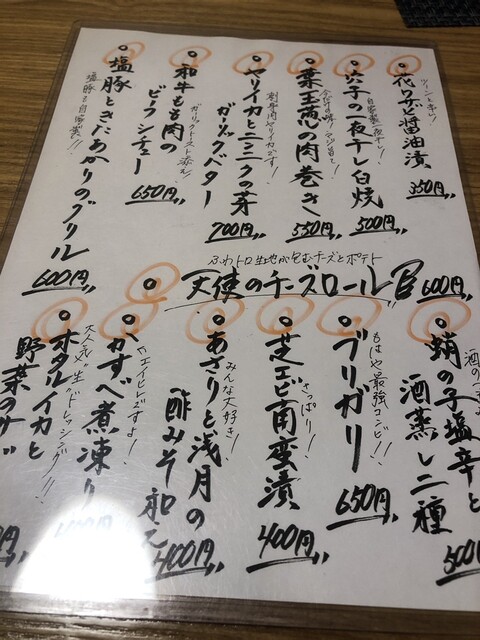 花ワサビ醤油漬
ツィーンと辛い!
350円
穴子の一夜干し白焼
自家製一夜干し!
500円
葉玉ねぎの肉巻き
350円
ヤリイカとニンニクの芽
ガーリックバター
刺身用ヤリイカです!
700円
和牛もも肉の
ビーフシチュー
ガーリックトースト添え!
650円
塩豚ときたあかりのグリル
塩豚も自家製!!
600円
ふわトロ生地が包むチーズとポテト
天使のチーズロール
600円
酒のつまみ
蛸の子塩辛と
酒蒸し二種
500円
ブリガリ
もはや最強コンビ!!
650円
芝エビ南蛮漬
さっぱり!
400円
あさりと浅月の
酢みそ和え
みんな大好き!
400円
かすべ煮凍り
エイヒレですよ!
400円
ホタルイカと
野菜のサ
大人気"生"ドレッシング!!